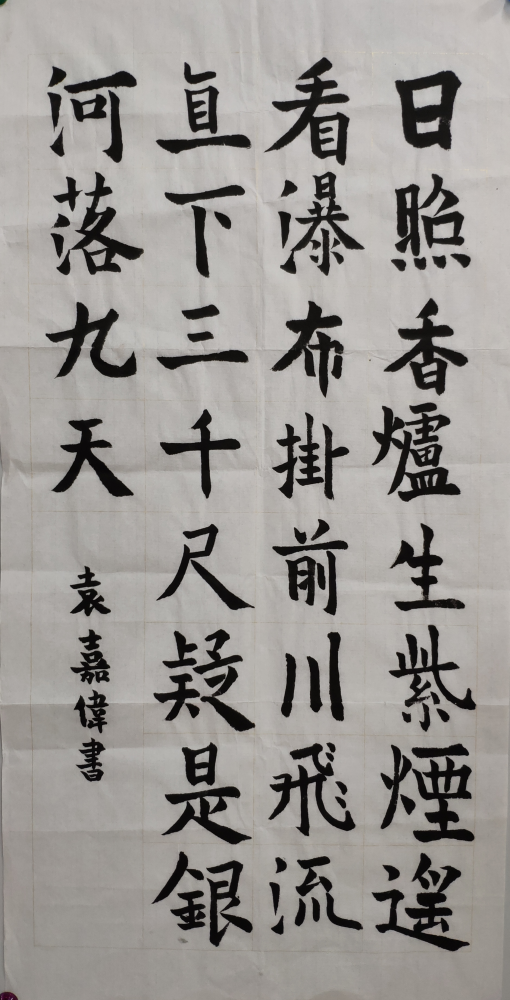 日照香爐生紫煙遥
看瀑布掛前川飛流
直下三千尺疑是銀
河落九天
袁嘉偉書